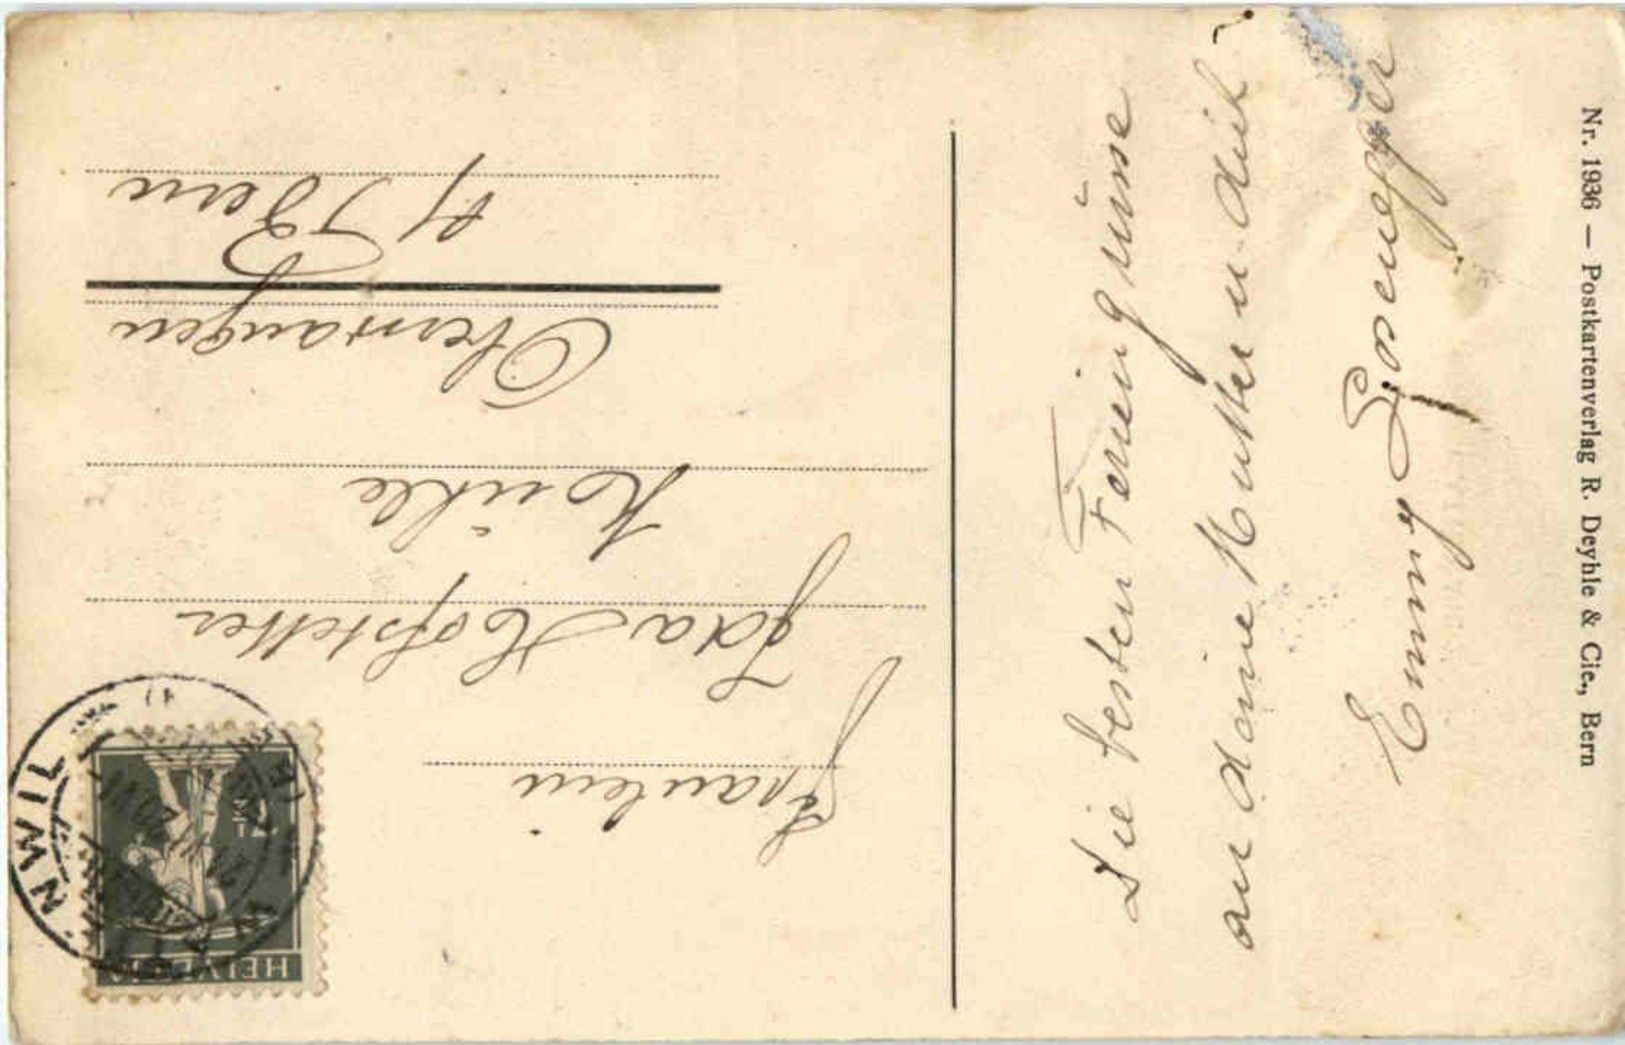 Die besten Feriengrüsse
an deine Mutter u. dich
Emmy
Nr. 1936 — Postkartenverlag R. Deyhle & Cie., Bern
HELVETIA
NWIL
Fräulein
Ida Hofstetter
Oberwangen
b/ Bern